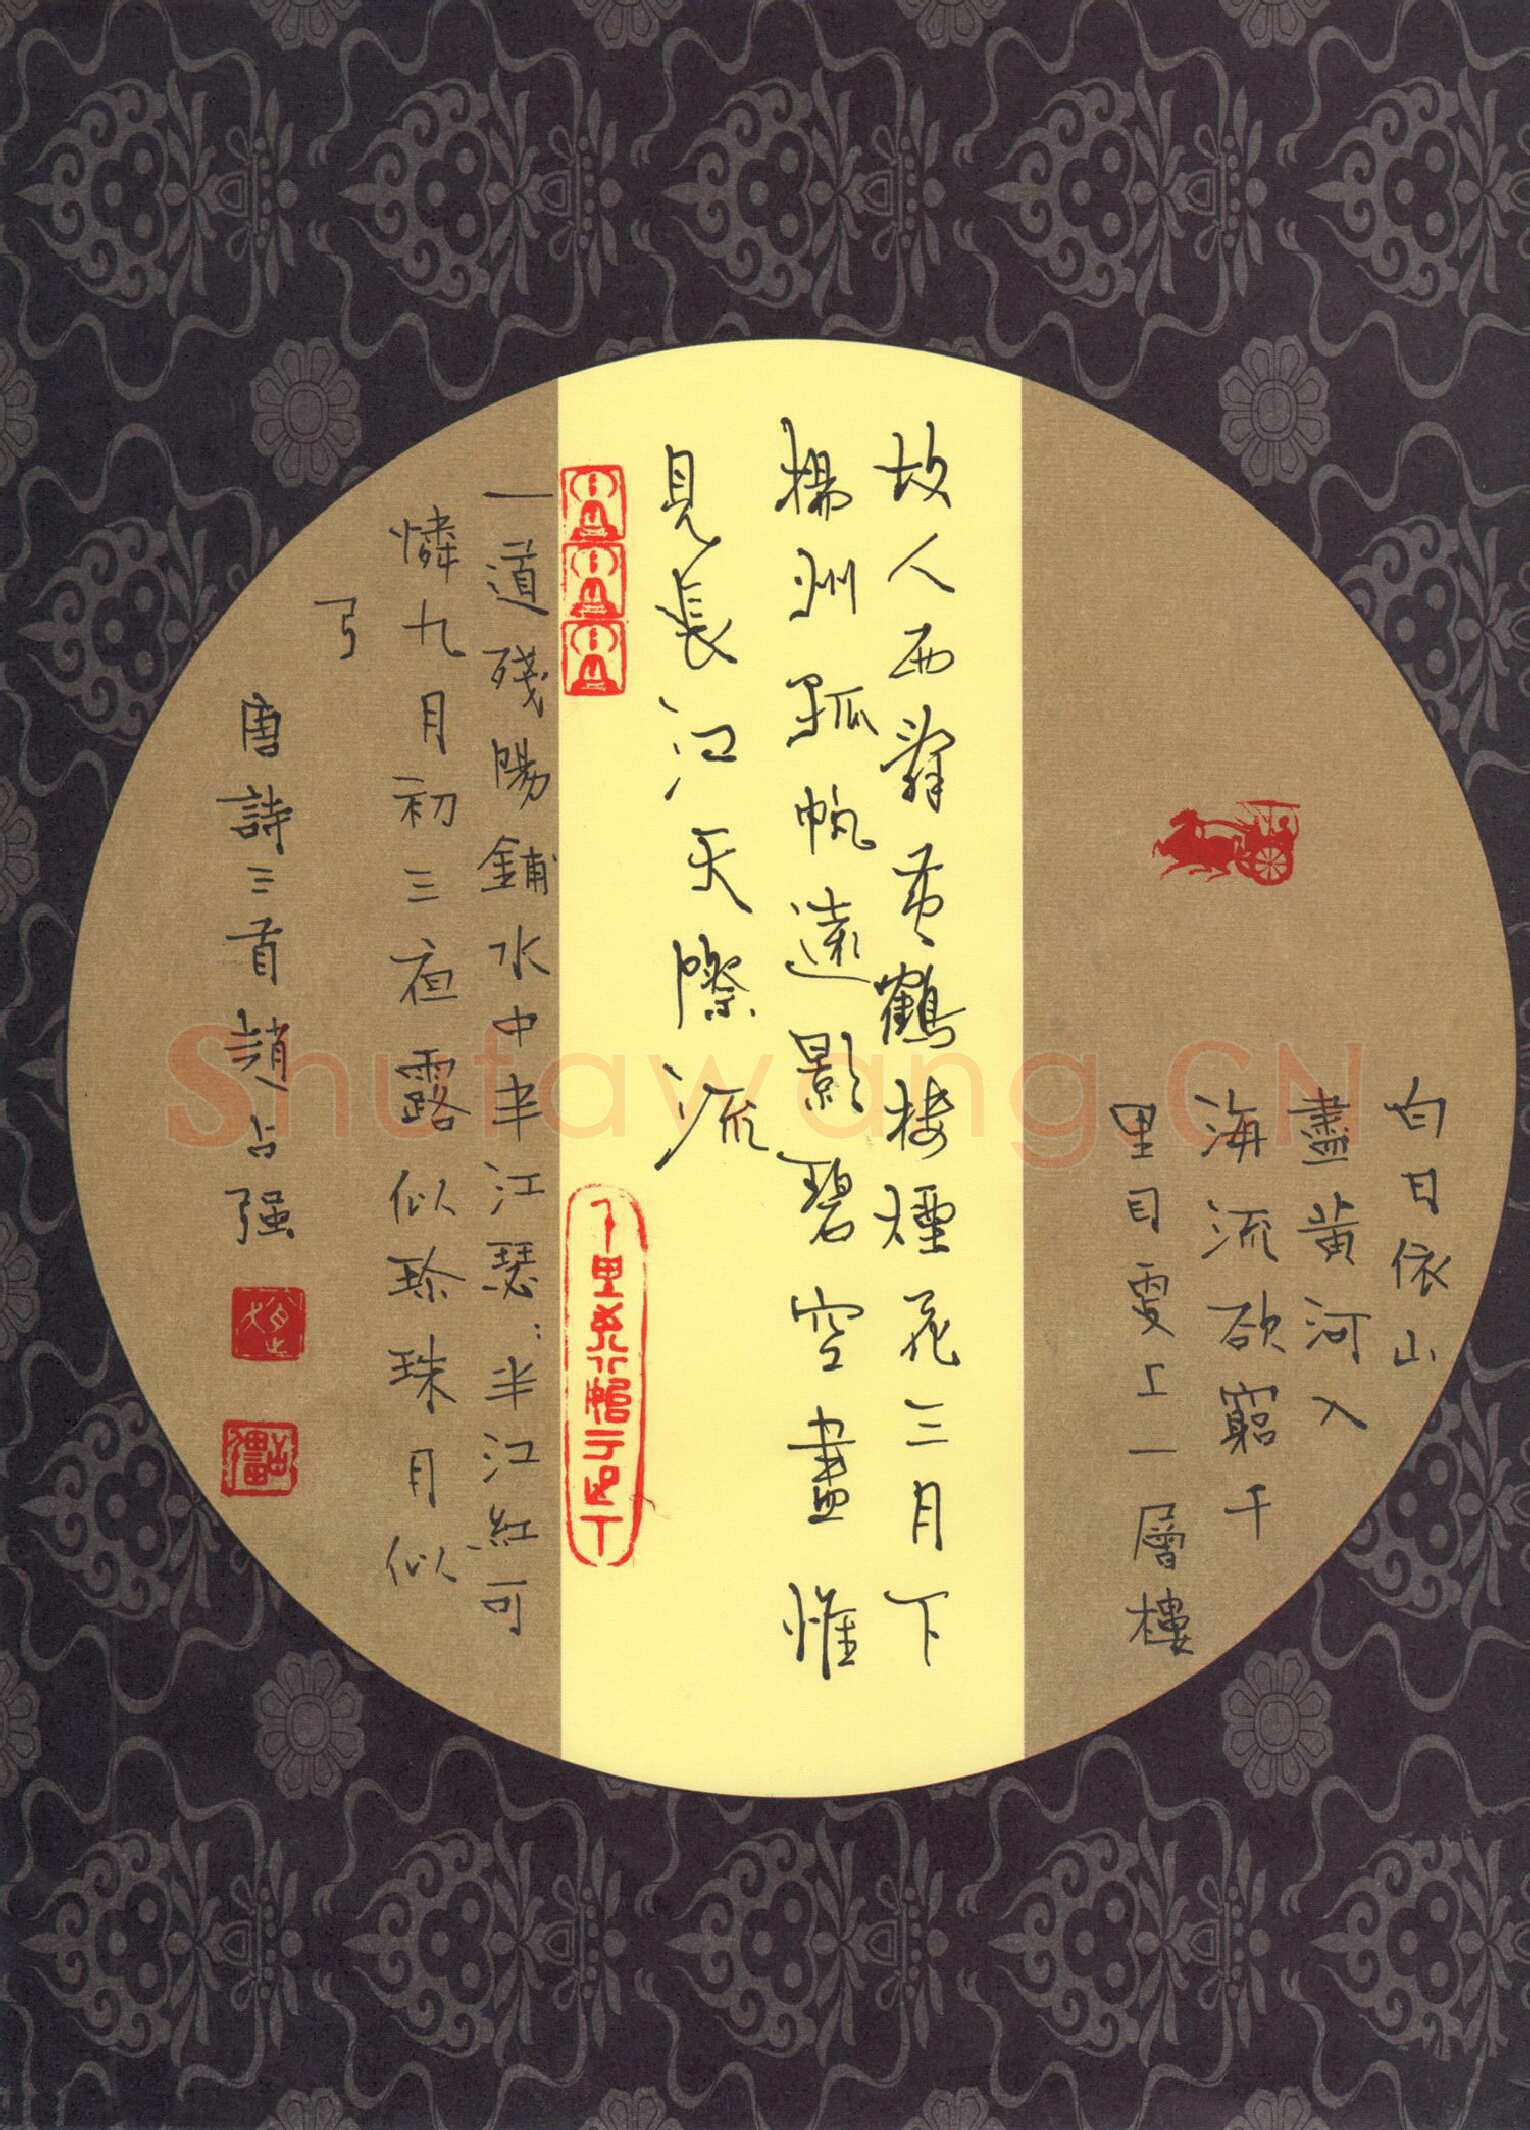 白日依山
盡黃河入
海流欲窮千
里目更上一層樓
故人西辭黃鶴楼煙花三月下
揚州孤帆遠影碧空盡惟
見長江天際流
一道殘陽鋪水中半江瑟:半江紅可
憐九月初三夜露似珍珠月似
弓
唐詩三首趙占强
Shufawang.CN